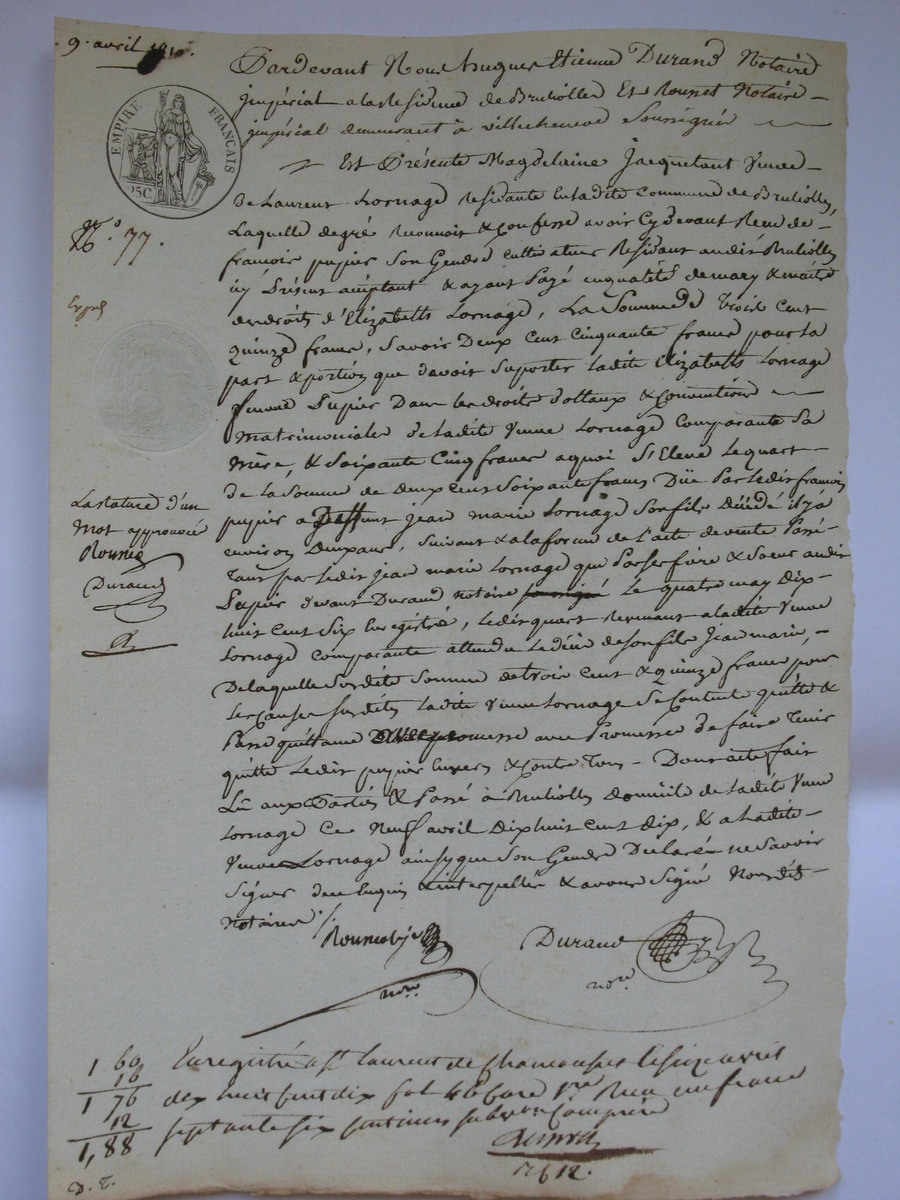 9. avril 1810.
EMPIRE FRANÇAIS
25C
N.° 77.
Pardevant Nous hugues Etienne Durand Notaire
jmpérial ala residence de Brullolles Et Rounet Notaire
jmpérial demeurant à villecheneve Soussignés
Est Présente Magdelaine Jacquetant veuve
de Laurent Lornage Residante en ladite commune de Brullolles,
Laquelle degré reconnoit & confesse avoir cy devant Receu de
francois pupier Son Gendre cultivateur Residant audit Brullolles
icy Présent acceptant & ayant Payé en qualité de mary & maitre
des droits d'Elizabeth Lornage, La Somme de Trois Cent
Quinze francs, Savoir Deux Cent Cinquante francs pour la
part & portion que devoit Suporter ladite Elizabeth Lornage
femme Pupier Dans les droits dottaux & Conventions
Matrimoniales de ladite veuve Lornage Comparante Sa
Mère, & Soixante Cinq francs aquoi S'Eleve Le quart
de la Somme de deux Cent Soixante francs Düe Par ledit francois
pupier a Deffunt jean marie Lornage Son fils décédé il y a
environ deux ans, Suivant & ala forme de l'acte de vente Passé
tant par ledit jean marie Lornage que Par Ses frère & Soeur audit
Pupier devant Durand notaire Le quatre may dix-
huit cent Six Enregistré, Ledit quart revenant à ladite veuve
Lornage Comparante attendu Le décès de Son fils jean marie,
De laquelle Susdite Somme de trois Cent & quinze francs pour
les Causes Susdites ladite veuve Lornage Se Contente quitte &
Passe quittance avec Promesse de faire tenir
quitte Ledit pupier Envers & Contre Tous - Dont acte fait
Lû aux Parties & Passé à Brullolles Domicile de ladite veuve
Lornage Ce Neuf avril Dix huit cent dix, & a ladite
veuve Lornage ainsy que Son Gendre Declaré ne Savoir
Signer de ce Enquis & interpellés & avons Signé Nousdits
notaires ./.
La rature d'un
Mot approuvée
Durand
Durand
no.re
no.re
1 60
16
1 76
12
1,88
Enregistré a St laurent de Chamousset le Seize avril
dix huit cent dix fol 46 Reçu un franc
Septante Six Centimes Subvon Comprise